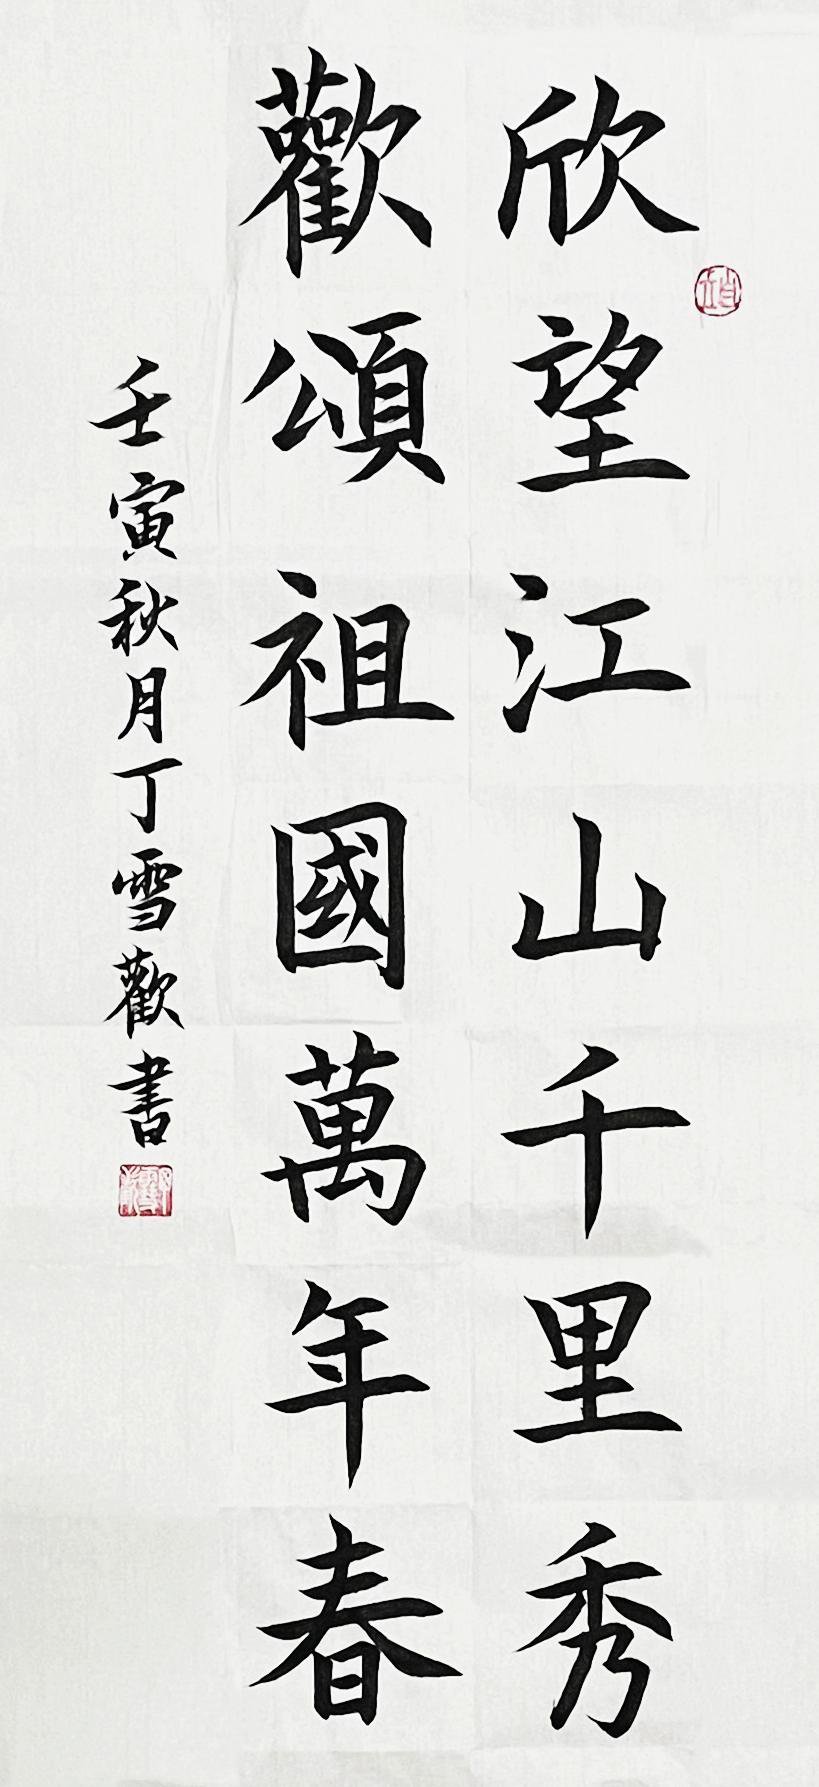 欣望江山千里秀
歡頌祖國萬年春
壬寅秋月丁雪歡書